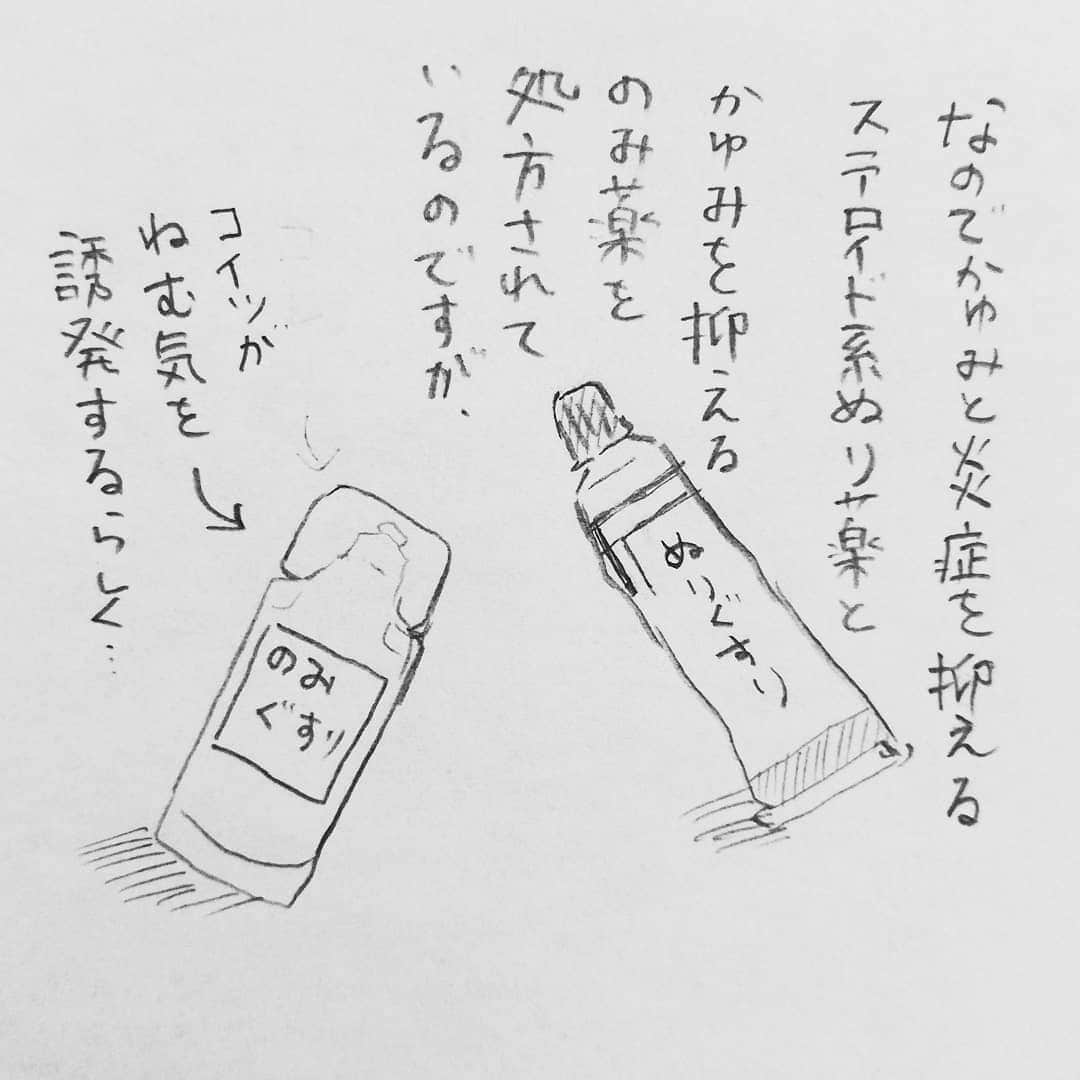 なのでかゆみと炎症を抑える
ステロイド系ぬり薬と
かゆみを抑える
のみ薬を
処方されて
いるのですが、
ぬりぐすり
コイツが
ねむ気を
誘発するらしく…
のみ
ぐすり